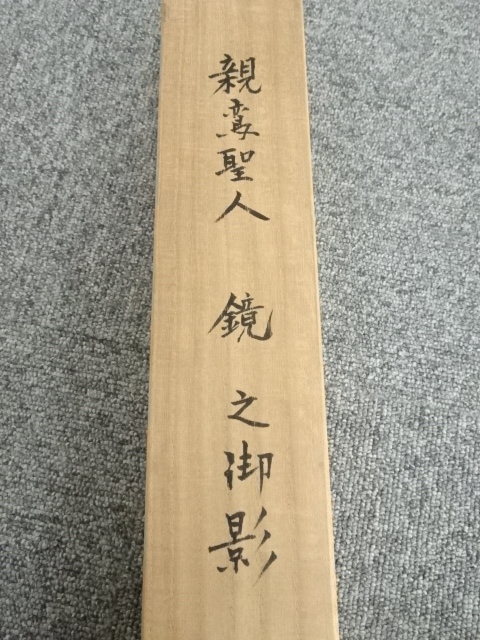 親鸞聖人 鏡之御影